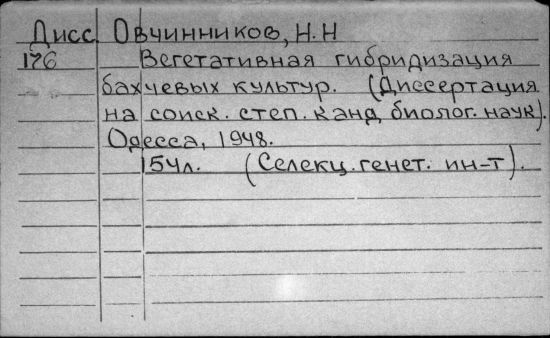 Дисс. Овчинников, Н.Н
176 Вегетативная гибридизация
бахчевых культур. (Диссертация
на соиск. степ. канд. биолог. наук).
Одесса, 1948.
154л. (Селекц. генет. ин-т).